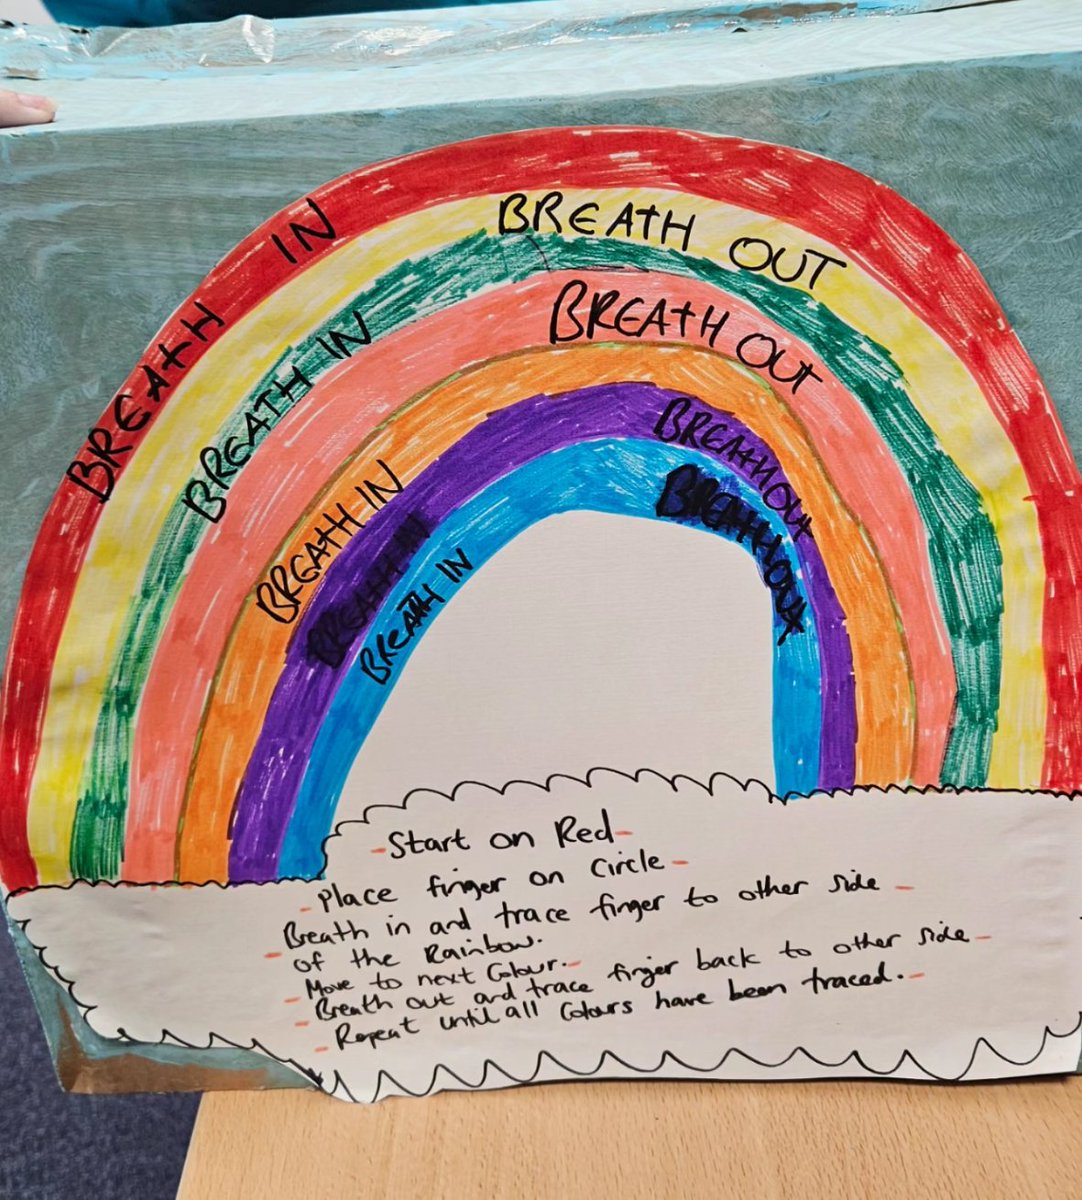 BREATH IN
BREATH OUT
BREATH IN
BREATH OUT
BREATH IN
BREATH OUT
BREATH IN
BREATH OUT
BREATH IN
-Start on Red-
-Place finger on Circle-
Breath in and trace finger to other side -
- of the Rainbow.
Move to next Colour.-
- Breath out and trace finger back to other side-
- Repeat until all Colours have been traced.-